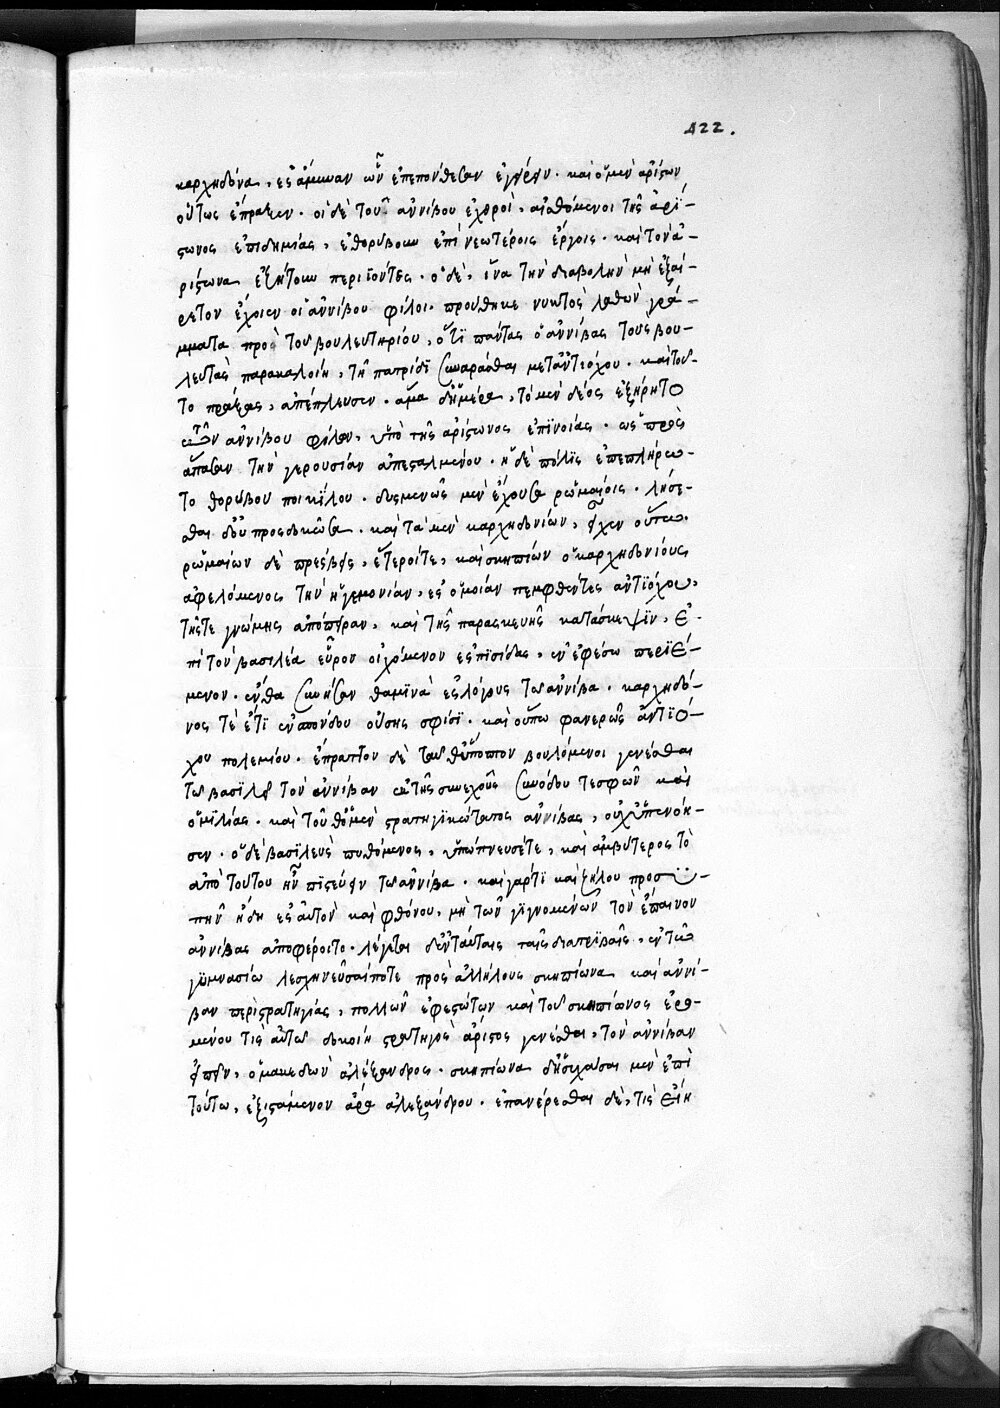 422.
καρχηδόνα, ἐς ἄμυναν ὧν ἐπεπόνθεσαν ἐγείρειν. καὶ ὁ μὲν ἀρίστων
οὕτως ἔπρασσεν. οἱ δὲ τοῦ ἀννίβου ἐχθροὶ, αἰσθόμενοι τῆς ἀρί-
στωνος ἐπιδημίας, ἐθορύβουν ἐπὶ νεωτέροις ἔργοις. καὶ τὸν ἀ-
ρίστωνα ἐζήτουν περιϊόντες. ὁ δὲ, ἵνα τὴν διαβολὴν μὴ ἐξαί-
ρετον ἔχοιεν οἱ ἀννίβου φίλοι. προύθηκε νυκτὸς λαθὼν γρά-
μματα πρὸ τοῦ βουλευτηρίου, ὅτι πάντας ὁ ἀννίβας τοὺς βου-
λευτὰς παρακαλοίη, τῇ πατρίδι συνάρασθαι μετ' ἀντιόχου. καὶ τοῦ-
το πράξας, ἀπέπλευσεν. ἅμα δ' ἡμέρᾳ, τὸ μὲν δέος ἐξῄρητο
τῶν ἀννίβου φίλων, ὑπὸ τῆς ἀρίστωνος ἐπινοίας. ὡς πρὸς
ἅπασαν τὴν γερουσίαν ἀπεσταλμένου. ἡ δὲ πόλις ἐπεπλήρω-
το θορύβου ποικίλου. δυσμενῶς μὲν ἔχουσα ῥωμαίοις. λήσε-
σθαι δ' οὐ προσδοκῶσα. καὶ τὰ μὲν καρχηδονίων, εἶχεν οὕτω.
ῥωμαίων δὲ πρέσβεις, ἕτεροί τε, καὶ σκηπίων ὁ καρχηδονίους
ἀφελόμενος τὴν ἡγεμονίαν, ἐς ὁμοίαν πεμφθέντες ἀντιόχου,
τῆς τε γνώμης ἀπόπειραν, καὶ τῆς παρασκευῆς κατάσκεψιν, ἐ-
πὶ τὸν βασιλέα εὗρον οἰχόμενον ἐς πισίδας, ἐν ἐφέσῳ περιέ-
μενον. ἔνθα συνῄεσαν θαμινὰ ἐς λόγους τῷ ἀννίβᾳ. καρχηδό-
νος τὲ ἔτι ἐνσπόνδου οὔσης σφίσι. καὶ οὔπω φανερῶς ἀντιό-
χου πολεμίου. ἔπραττον δὲ τοῦθ' ὕποπτον βουλόμενοι γενέσθαι
τῷ βασιλεῖ τὸν ἀννίβαν ἐκ τῆς συνεχοῦς συνόδου τε σφῶν καὶ
ὁμιλίας. καὶ τοῦθ' ὁ μὲν στρατηγικώτατος ἀννίβας, οὐχ ὑπενόη-
σεν. ὁ δὲ βασιλεὺς πυθόμενος, ὑπώπτευσέτε, καὶ ἀμβλύτερος τὸ
ἀπὸ τούτου ἦν πιστεύειν τῷ ἀννίβᾳ. καὶ γάρ τι καὶ ζήλου προσϋ-
πῆν ἤδη ἐς αὐτὸν καὶ φθόνου, μὴ τῶν γιγνομένων τὸν ἔπαινον
ἀννίβας ἀποφέροιτο. λέγεται δ' ἐν ταύταις ταῖς διατριβαῖς, ἐν τῷ
γυμνασίῳ λεσχηνεῦσαί ποτε πρὸς ἀλλήλους σκηπίωνα καὶ ἀννί-
βαν περὶ στρατηγίας, πολλῶν ἐφεστώτων καὶ τοῦ σκηπίωνος ἐρο-
μένου τίς αὐτῷ δοκοίη στρατηγὸς ἄριστος γενέσθαι, τὸν ἀννίβαν
εἰπεῖν, ὁ μακεδὼν ἀλέξανδρος. σκηπίωνα δ' ἡσυχάσαι μὲν ἐπὶ
τούτῳ, ἐξιστάμενον ἄρα ἀλεξάνδρου. ἐπανέρεσθαι δὲ, τίς εἴη